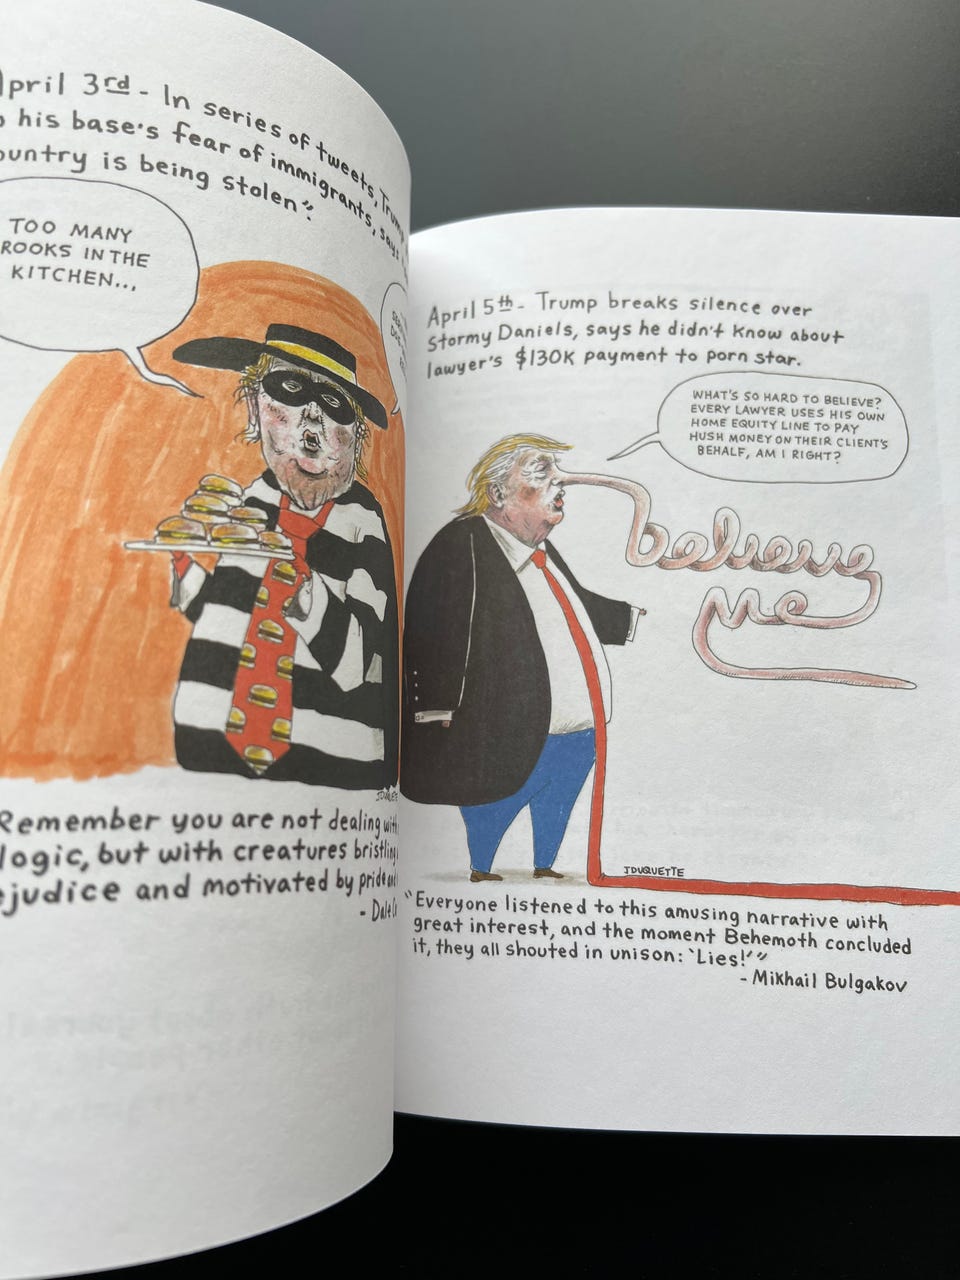 April 3rd - In series of tweets, Trump
his base's fear of immigrants, says
ountry is being stolen".
TOO MANY
ROOKS IN THE
KITCHEN...
Remember you are not dealing with
logic, but with creatures bristling
ejudice and motivated by pride and
- Dale
April 5th - Trump breaks silence over
Stormy Daniels, says he didn't know about
lawyer's $130K payment to porn star.
WHAT'S SO HARD TO BELIEVE?
EVERY LAWYER USES HIS OWN
HOME EQUITY LINE TO PAY
HUSH MONEY ON THEIR CLIENT'S
BEHALF, AM I RIGHT?
believe
me
JDUQUETTE
"Everyone listened to this amusing narrative with
great interest, and the moment Behemoth concluded
it, they all shouted in unison: 'Lies!'"
- Mikhail Bulgakov